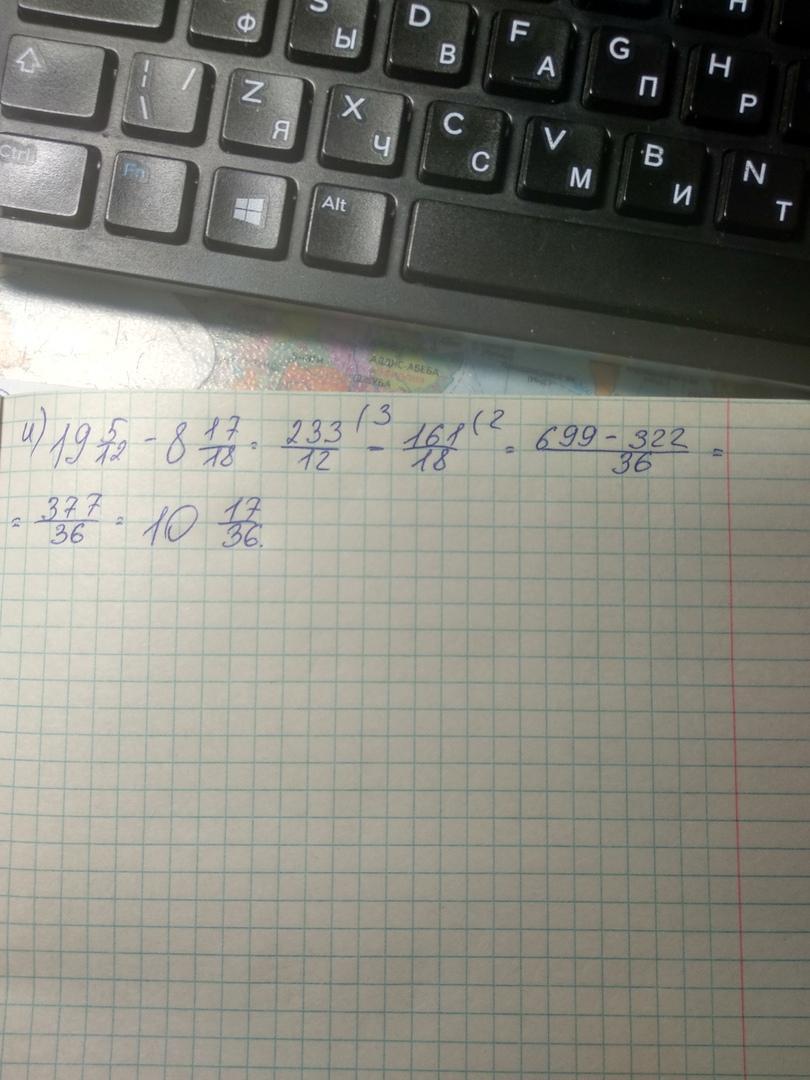 Ф
S Ы
D В
F А
G П
H Р
Н
| \ /
Z Я
X Ч
C С
V М
B И
N Т
Ctrl
Fn
Alt
АДДИС-АБЕБА
ДЖУБА
и) 19 5/12 - 8 17/18 = 233/12 (3 - 161/18 (2 = 699 - 322/36 =
= 377/36 = 10 17/36.